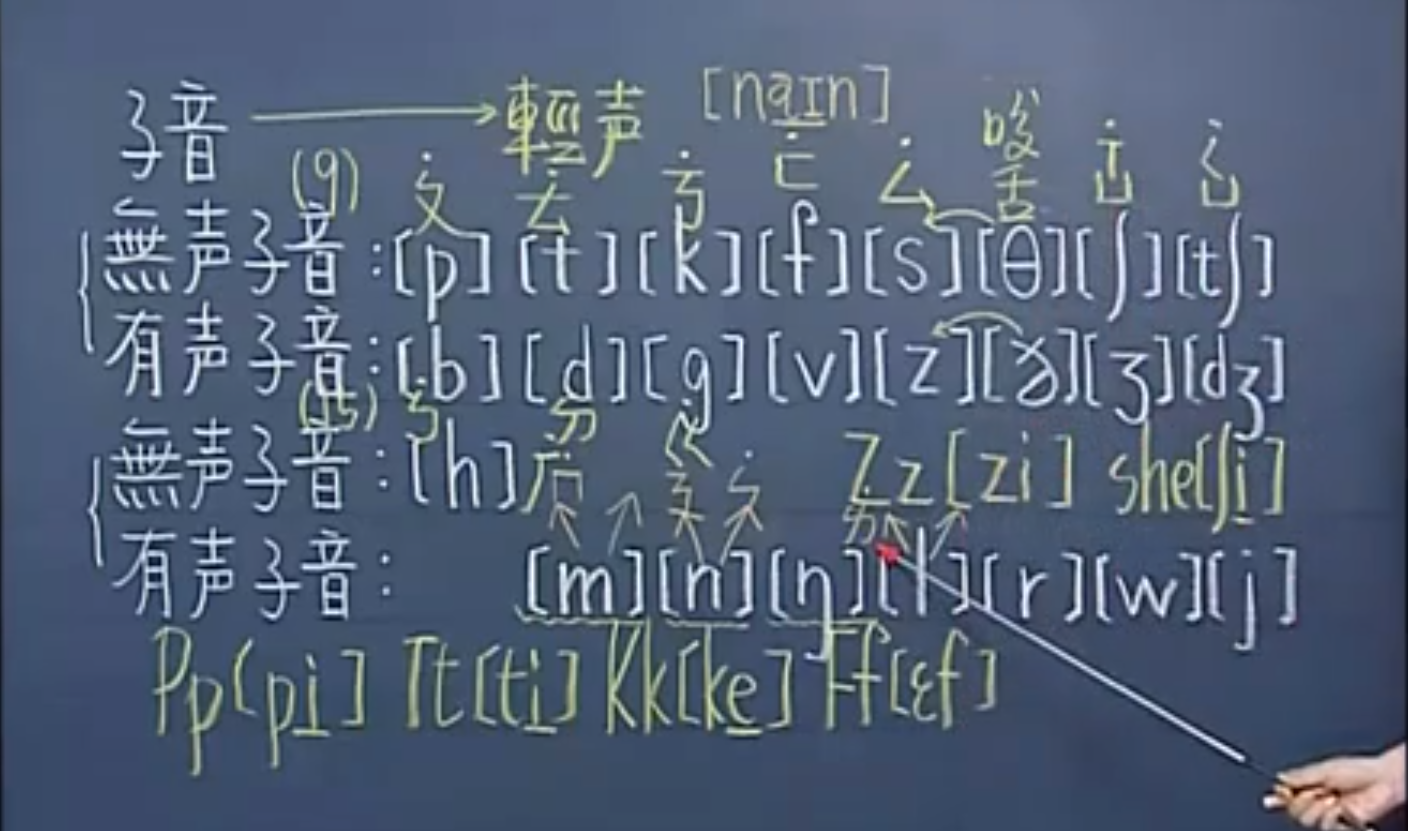 子音 → 輕声 [naɪn]
(9) ˙ㄆ ˙ㄊ ˙ㄎ ˙ㄈ ˙ㄙ 咬舌 ˙ㄒㄩ ˙ㄑㄩ
無声子音:[p][t][k][f][s][θ][ʃ][tʃ]
有声子音:[b][d][g][v][z][ð][ʒ][dʒ]
(15)
無声子音:[h] Zz[zi] she[ʃi]
有声子音: [m][n][ŋ][l][r][w][j]
Pp[pi] Tt[ti] Kk[ke] Ff[ɛf]